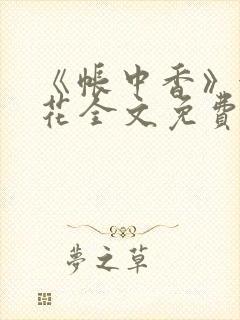 《帳中香》
花全文免費
夢之草